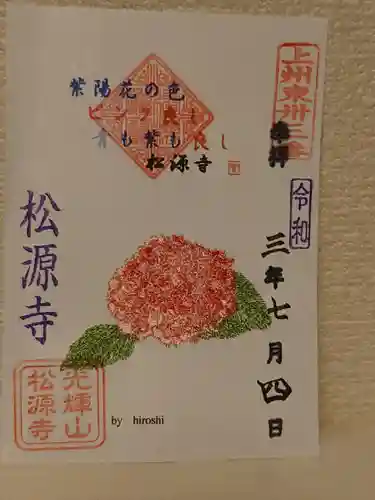 上州東卅三
奉拝
令和
三年七月四日
紫陽花の色
ピンク良し
青も紫も良し
松源寺
松源寺
光輝山
松源寺
by hiroshi